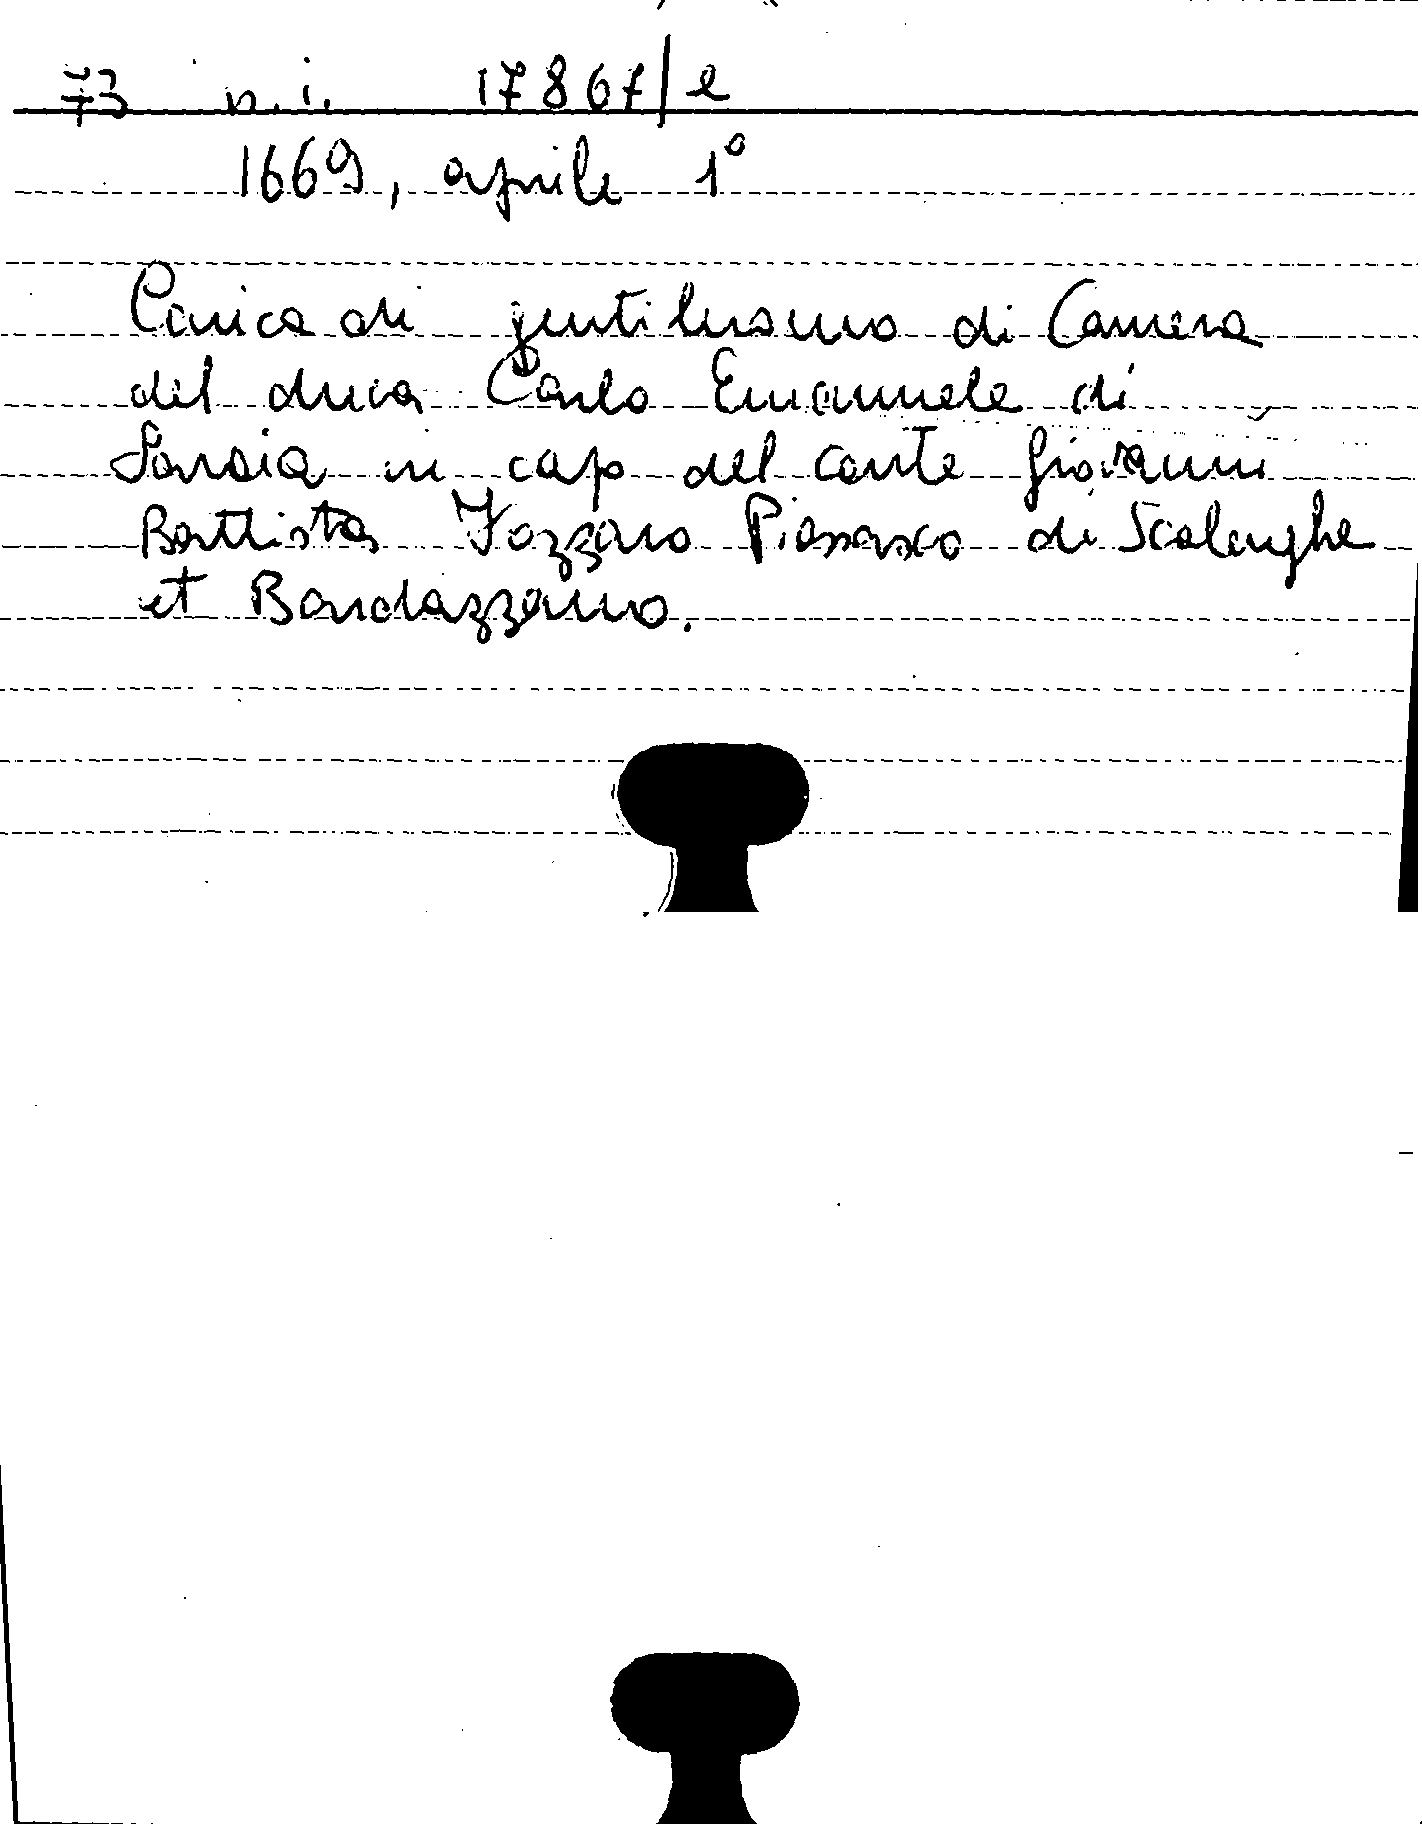 73 n.i. 17867/e
1669, aprile 1°
Carica di gentiluomo di Camera
del duca Carlo Emanuele di
Savoia in capo del conte Giovanni
Battista Piossasco di Scalenghe
et Bardazzano.